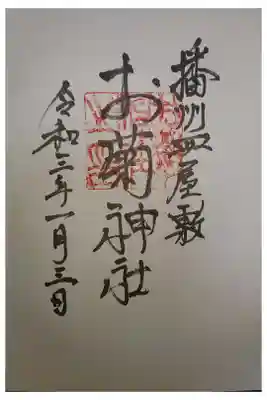 播州皿屋敷
お菊神社
令和三年一月三日